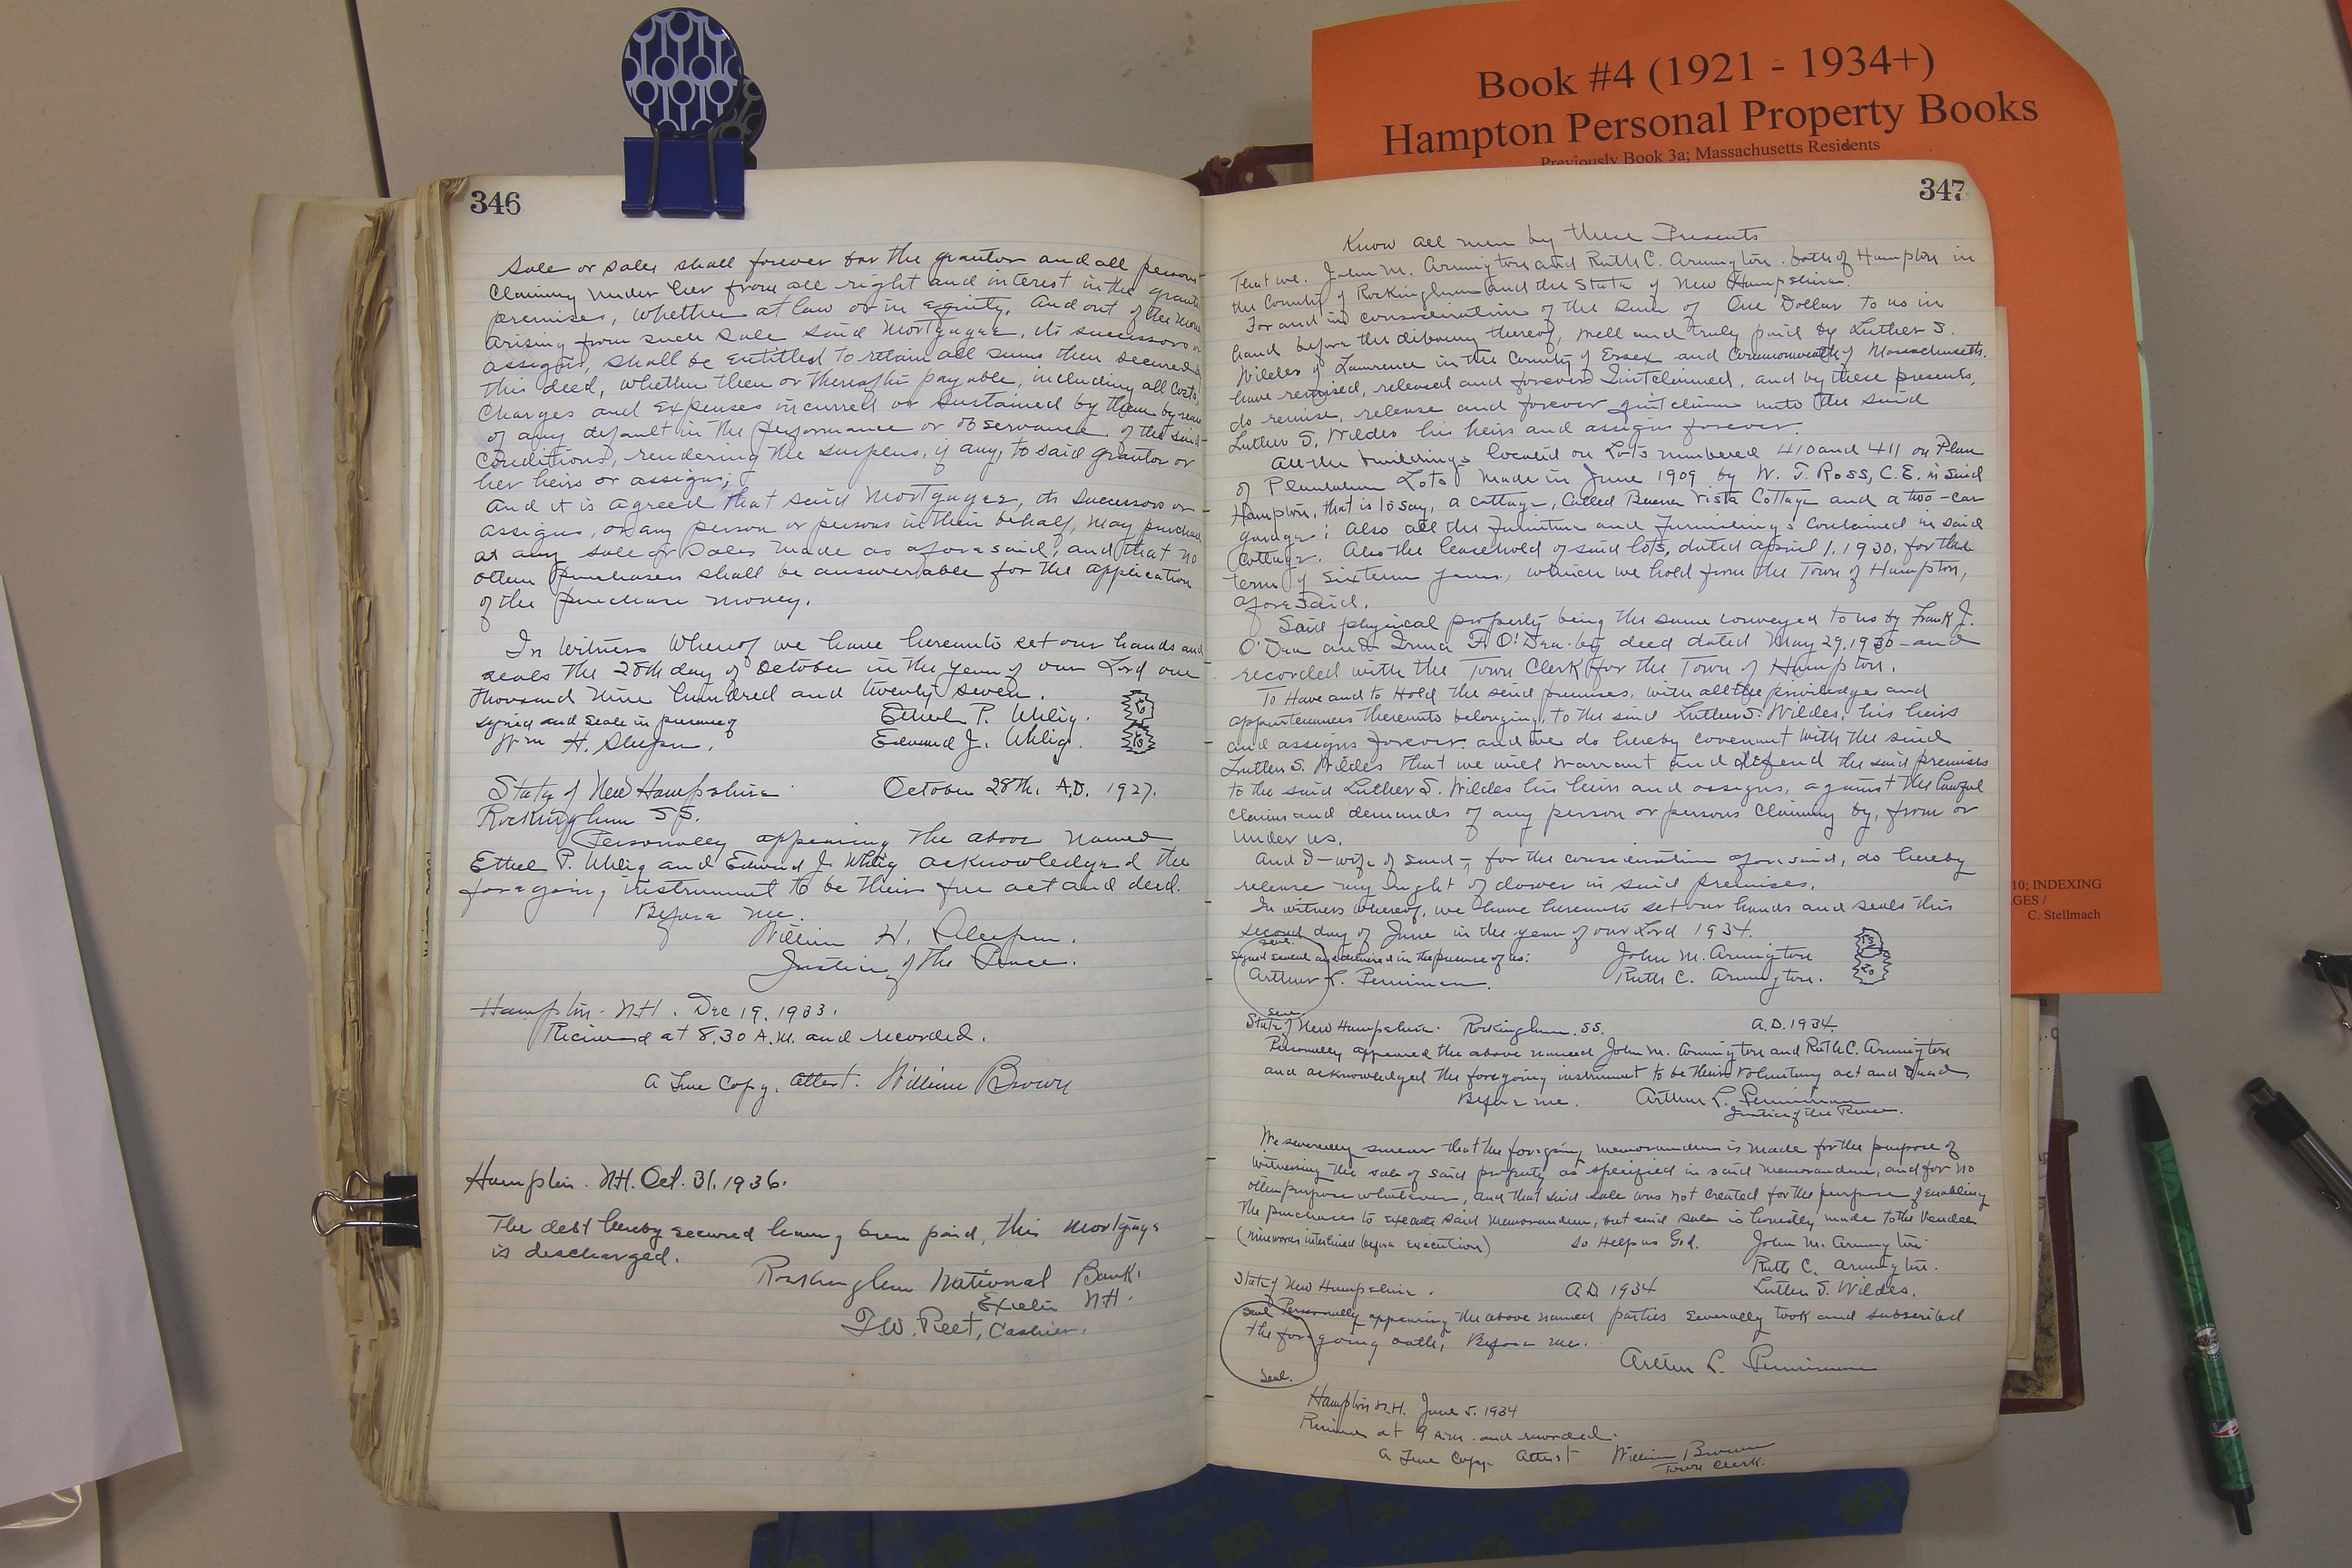 Book #4 (1921 - 1934+)
Hampton Personal Property Books
Previously Book 3a; Massachusetts Residents
10; INDEXING
GES /
C. Stellmach
346
Sale or sales shall forever bar the grantor and all persons
claiming under her from all right and interest in the
premises, whether at law or in equity. And out of the
arising from such sale said Mortgagee, its successors or
assigns, shall be entitled to retain all sums then secured
this deed, whether then or thereafter payable, including all costs,
charges and expenses incurred or sustained by them by
of any default in the performance or observance of the said
conditions, rendering the surplus, if any, to said grantor or
her heirs or assigns;
And it is agreed that said Mortgagee, its successors or
assigns, or any person or persons in their behalf, may purchase
at any sale or sales made as aforesaid; and that no
other purchasers shall be answerable for the application
of the purchase money.
In Witness Whereof we have hereunto set our hands and
seals the 28th day of October in the year of our Lord one
thousand nine hundred and twenty seven.
signed and seale in presence of
Ethel P. Uhlig.
Wm H. Sleeper.
Edward J. Uhlig.
State of New Hampshire
October 28th. A.D. 1927.
Rockingham SS.
Personally appearing the above named
Ethel P. Uhlig and Edward J. Uhlig acknowledged the
foregoing instrument to be their free act and deed.
Before me.
William H. Sleeper.
Justice of the Peace.
Hampton. N.H. Dec 19, 1933.
Received at 8.30 A.M. and recorded.
A True Copy. Attest. William Brown
Hampton. N.H. Oct. 31. 1936.
The debt hereby secured having been paid, this mortgage
is discharged.
Rockingham National Bank.
Exeter N.H.
Cashier.
347
Know all men by these Presents
That we. John M. Armington and Ruth C. Armington. both of Hampton in
the County of Rockingham and the State of New Hampshire.
For and in consideration of the sum of One Dollar to us in
hand before the delivery thereof, well and truly paid by Luther S.
Wildes of Lawrence in the County of Essex and Commonwealth of Massachusetts.
have remised, released and forever Quitclaimed, and by these presents,
do remise, release and forever quitclaim unto the said
Luther S. Wildes his heirs and assigns forever.
All the buildings located on Lots numbered 410 and 411 on Plan
of Lots made in June 1909 by W. T. Ross, C.E. in said
Hampton, that is to say, a cottage, called Buena Vista Cottage and a two-car
garage; Also all the furniture and furnishings contained in said
Cottage. Also the leasehold of said lots, dated April 1. 1930. for the
term of sixteen years, which we hold from the Town of Hampton,
aforesaid.
Said physical property being the same conveyed to us by Frank J.
O'Dea and Irma F. O'Dea by deed dated May 29, 1930 - and
recorded with the Town Clerk for the Town of Hampton.
To Have and to Hold the said premises, with all the privileges and
appurtenances thereunto belonging, to the said Luther S. Wildes, his heirs
and assigns forever. and we do hereby covenant with the said
Luther S. Wildes that we will warrant and defend the said premises
to the said Luther S. Wildes his heirs and assigns, against the lawful
claims and demands of any person or persons claiming by, from or
under us.
And I - wife of said -, for the consideration aforesaid, do hereby
release my right of dower in said premises.
In witness whereof, we have hereunto set our hands and seals this
second day of June in the year of our Lord 1934.
Seal.
Signed sealed and delivered in the presence of us:
John M. Armington
Arthur L. Penniman.
Ruth C. Armington.
Seal
State of New Hampshire. Rockingham. SS. A.D. 1934.
Personally appeared the above named John M. Armington and Ruth C. Armington
and acknowledged the foregoing instrument to be their voluntary act and deed,
Before me. Arthur L. Penniman
Justice of the Peace.
We severally swear that the foregoing memorandum is made for the purpose of
witnessing the sale of said property as specified in said memorandum, and for no
other purpose whatever, and that said sale was not created for the purpose of enabling
the purchaser to execute said memorandum, but said sale is honestly made to the Vendee
(nine words interlined before execution) So Help us God. John M. Armington
Ruth C. Armington.
State of New Hampshire. A.D. 1934 Luther S. Wildes.
Seal Personally appearing the above named parties severally took and subscribed
the foregoing oath, Before me.
Arthur L. Penniman
Seal.
Hampton N.H. June 5. 1934
Received at 9 A.M. and recorded.
A True Copy Attest William Brown
Town Clerk.